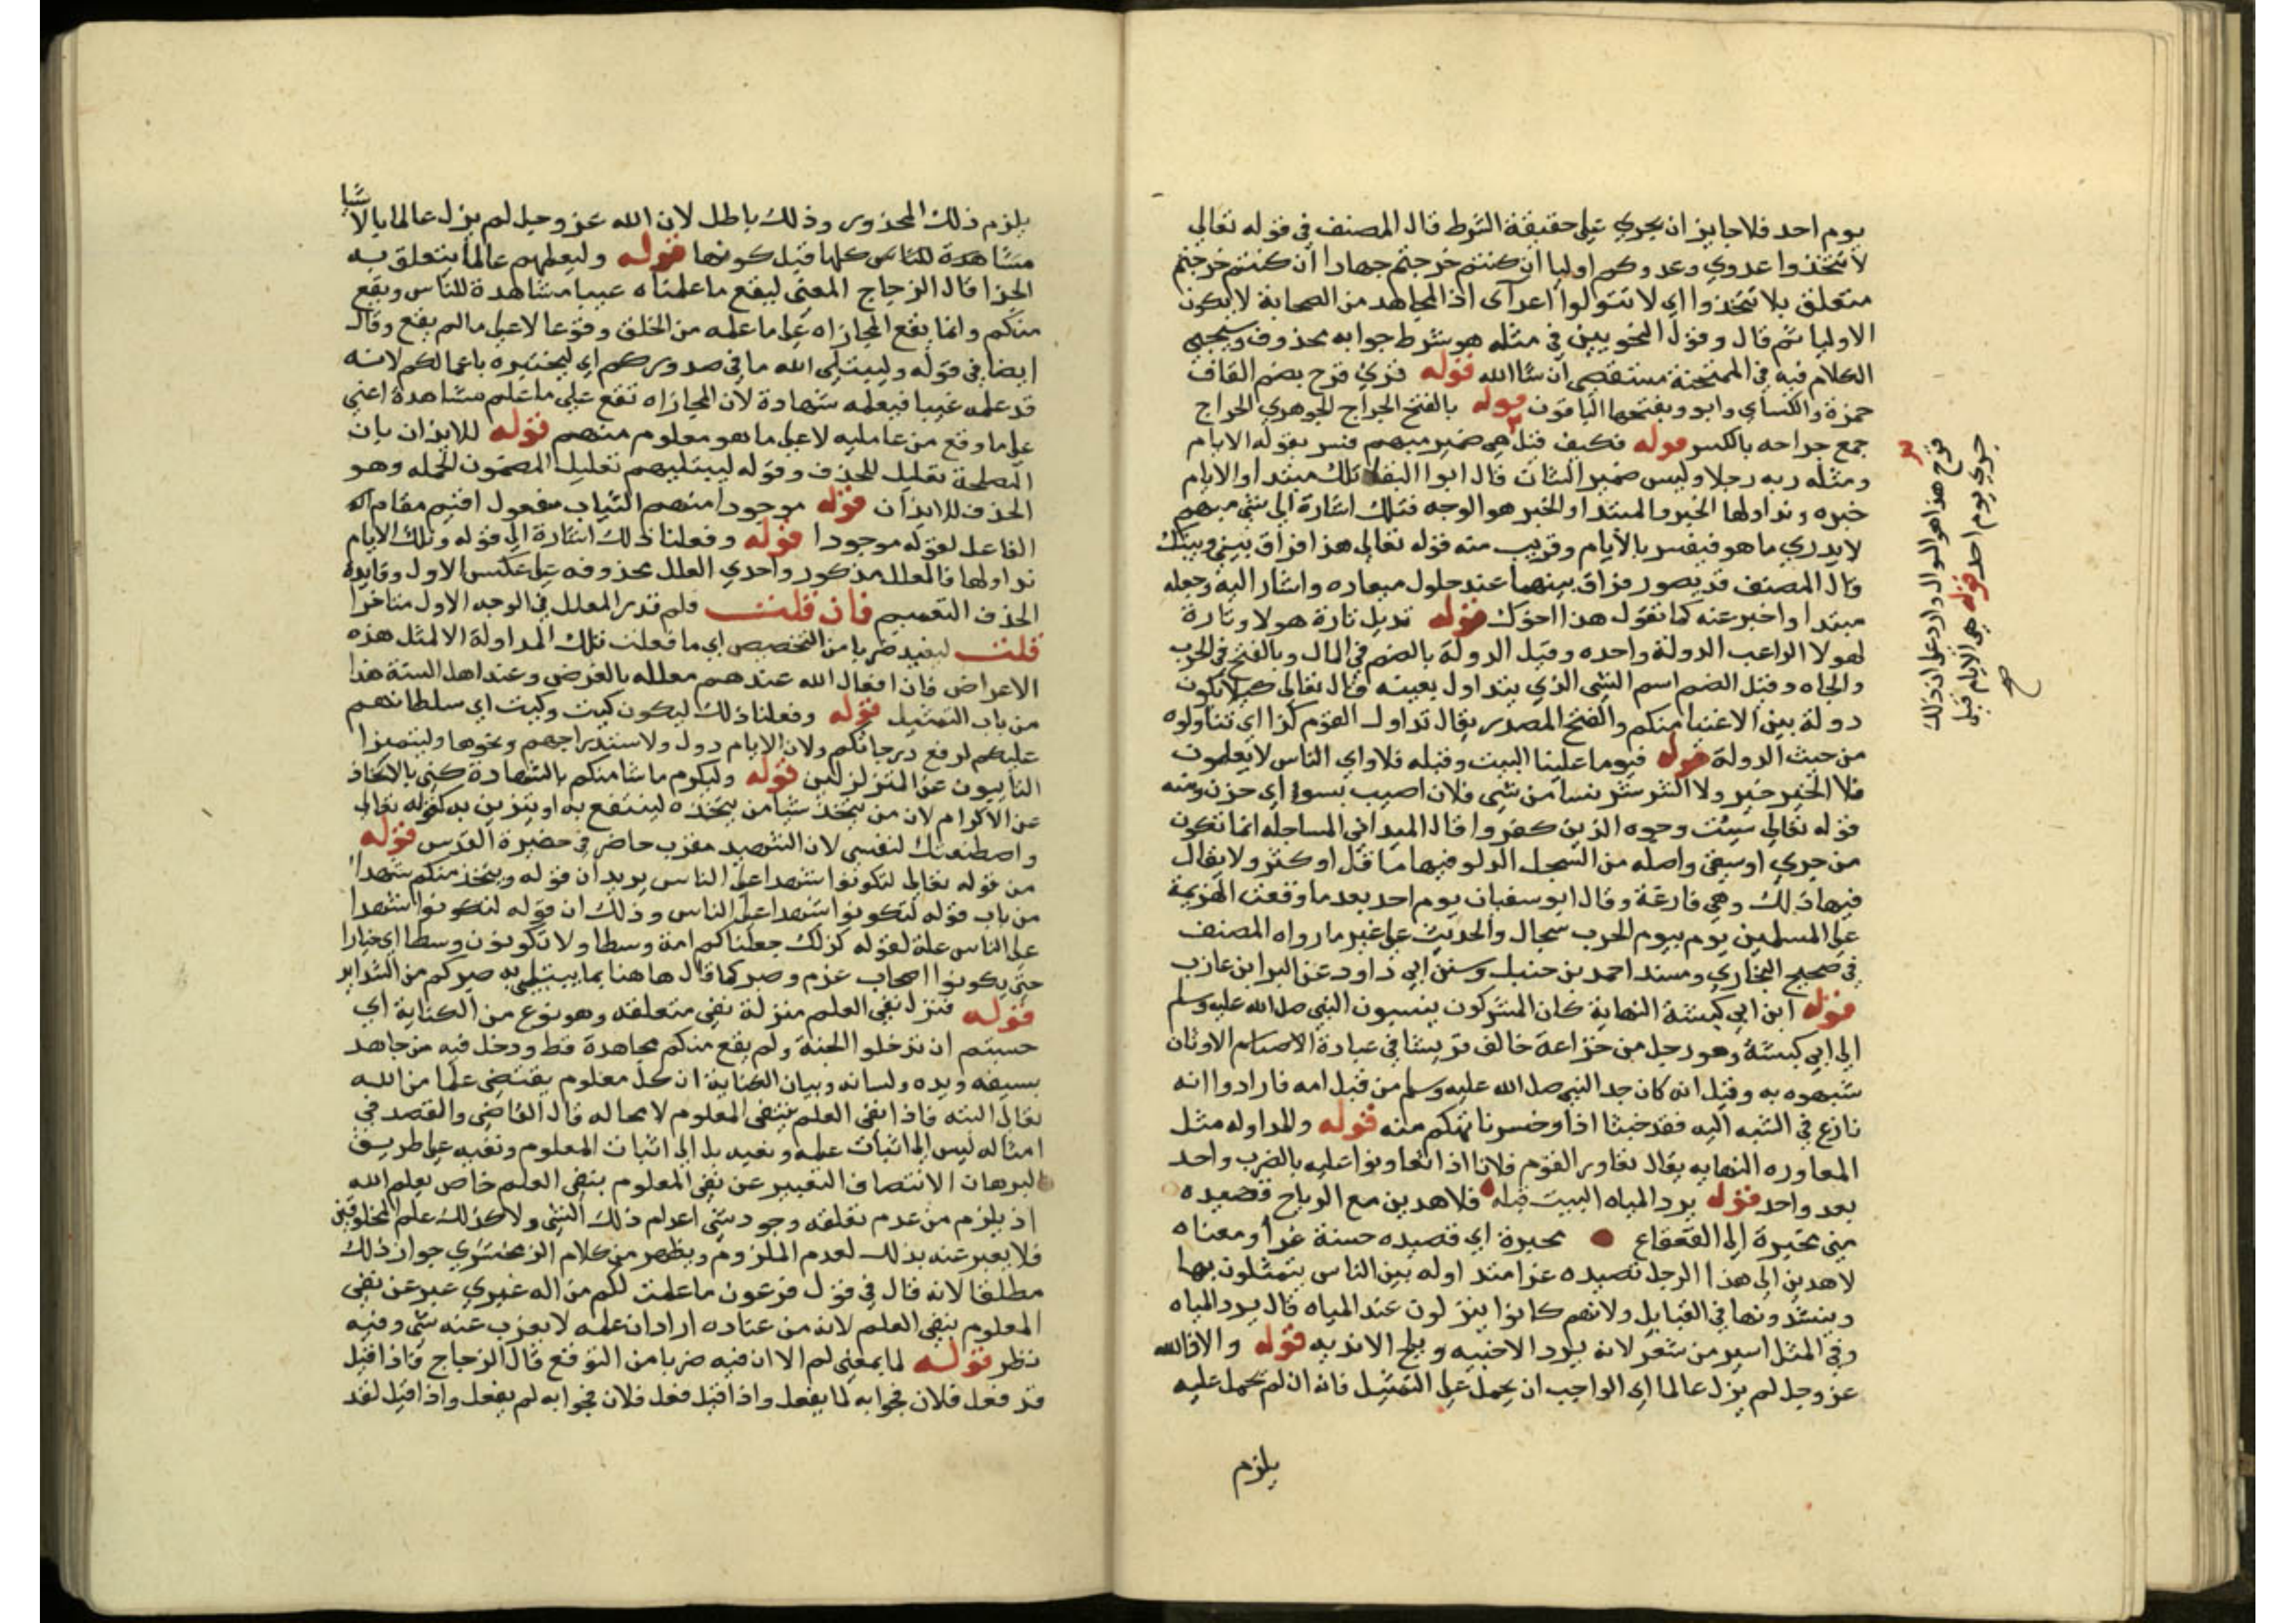 يوم احد فلا جايز ان يجري على حقيقة الشرط قال المصنف في قوله تعالى
لا تتخذوا عدوي وعدوكم اوليا ان كنتم خرجتم جهادا ان كنتم خرجتم
متعلق بلا تتخذوا اي لا تتولوا اعدآى اذ المجاهد من الصحابة لا يكون
الاوليا ثم قال وقول النحويين في مثله هو شرط جوابه محذوف وسيجي
الكلام فيه في الممتحنة مستقصى ان شا الله قوله قرئ قرح بضم القاف
حمزة والكساي وابو وبفتحها الباقون قوله بالفتح الجراح الجوهري الجراح
جمع جراحه بالكسر قوله فكيف قيل هي ضمير مبهم فسر بقوله الايام
ومثله ربه رجلا وليس ضمير الشان قال ابوا البقا تلك مبتدا والايام
خبره ونداولها الخبر والمبتدا والخبر هو الوجه فتلك اشارة الى شي مبهم
لا يدري ما هو فيفسر بالايام وقريب منه قوله تعالى هذا فراق بيني وبينك
قال المصنف قد يصور فراق بينهما عند حلول ميعاده واشار اليه وجعله
مبتدا واخبر عنه كما تقول هذا اخوك قوله نديل تارة هولا وتارة
لهولا الراغب الدولة واحده وقيل الدولة بالضم في المال وبالفتح في الحرب
والجاه وقيل الضم اسم الشي الذي يتداول بعينه قال تعالى كيلا يكون
دولة بين الاغنيا منكم والفتح المصدر يقال تداول القوم كذا اي تناولوه
من حيث الدولة قوله فيوما علينا البيت وقبله فلا واي الناس لا يعلمون
فلا الخير خير ولا الشر شر نسا من شي فلان اصيب بسوء اي حزن ومنه
قوله تعالى سيئت وجوه الذين كفروا قال الميداني المساجله انما تكون
من جري او سقي واصله من السجل الدلو فيها ما قل او كثر ولا يقال
فيها ذلك وهي فارغة وقال ابو سفيان يوم احد بعد ما وقعت الهزيمة
على المسلمين يوم بيوم الحرب سجال والحديث على غير ما رواه المصنف
في صحيح البخاري ومسند احمد بن حنبل وسنن ابي داود عن البرا بن عازب
قوله ابن ابي كبشة النهاية كان المشركون ينسبون النبي صلى الله عليه وسلم
الى ابي كبشة وهو رجل من خزاعة خالف قريشا في عبادة الاصنام الاوثان
شبهوه به وقيل انه كان جد النبي صلى الله عليه وسلم من قبل امه فارادوا انه
نازع في الشبه اليه فقد خبنا اذا وخسرنا تهكم منه قوله والمداوله مثل
المعاوره النهايه يقال تعاور القوم فلانا اذا تعاونوا عليه بالضرب واحد
بعد واحد قوله يرد المياه البيت قبله فلاهدين مع الرياح قصيده
مني محبرة الى القعقاع محبرة اي قصيده حسنة غرا ومعناه
لاهدين الى هذا الرجل قصيده عزا متداوله بين الناس يتمثلون بها
وينشدونها في القبايل ولانهم كانوا ينزلون عند المياه قال يرد المياه
وفي المثل اسير من شعر لانه يرد الاخبيه ويلج الانديه قوله والا فالله
عز وجل لم يزل عالما اي الواجب ان يحمل على التمثيل فانه ان لم يحمل عليه
يلزم
قرح هذا هو السوال وارد على ان ذلك
جري يوم احد قوله هي الايام قبل
صح
يلزم ذلك المحذور وذلك باطل لان الله عز وجل لم يزل عالما بالاشيا
مشاهدة للناس كلها قبل كونها قوله وليعلمهم عالما يتعلق به
الجزا قال الزجاج المعنى ليقع ما علمناه غيبا مشاهدة للناس ويقع
منكم وانما يقع المجازاه على ما علمه من الخلق وقوعا لا على ما لم يقع وقال
ايضا في قوله وليبتلي الله ما في صدوركم اي ليختبره باعمالكم لانه
قد علمه غيبا فيعلمه شهادة لان المجازاه تقع على ما علم مشاهدة اعني
على ما وقع من عامليه لا على ما هو معلوم منهم قوله للايذان بان
المصلحة تعليل للحذف وقوله ليبتليهم تعليل المضمون الجمله وهو
الحذف للايذان قوله موجودا منهم الثبات مفعول اقيم مقام
الفاعل لقوله موجودا قوله وفعلنا ذلك اشارة الى قوله وتلك الايام
نداولها فالمعلل مذكور واحدي العلل محذوفه على عكس الاول وفايدة
الحذف التعميم فان قلت فلم قدر المعلل في الوجه الاول متاخرا
قلت ليفيد ضربا من التخصيص اي ما فعلت تلك المداولة الا لمثل هذه
الاعراض فان افعال الله عندهم معلله بالغرض وعند اهل السنة هذا
من باب التمثيل قوله وفعلنا ذلك ليكون كيت وكيت اي سلطانهم
عليكم لرفع درجاتكم ولان الايام دول ولاستدراجهم ونحوها وليتميزا
الثابتون عن المتزلزلين قوله وليكرم ناسا منكم بالشهادة كني بالاتخاذ
عن الاكرام لان من يتخذ شيا من يتخذه لينتفع به او يتزين به كقوله تعالى
واصطنعتك لنفسي لان الشهيد مقرب حاضر في حضيرة القدس قوله
من قوله تعالى لتكونوا شهدا على الناس يريد ان قوله ويتخذ منكم شهدا
من باب قوله لتكونوا شهدا على الناس وذلك ان قوله لتكونوا شهدا
على الناس علة لقوله كذلك جعلناكم امة وسطا ولا تكونون وسطا اي خيارا
حتى يكونوا اصحاب عزم وصبر كما قال هاهنا بما يبتلي به صبركم من الشدايد
قوله فنزل نفي العلم منزلة نفي متعلقه وهو نوع من الكناية اي
حسبتم ان تدخلوا الجنة ولم يقع منكم مجاهدة قط ودخل فيه من جاهد
بسيفه ويده ولسانه وبيان الكناية ان كل معلوم يقتضي علما من الله
تعالى البته فاذا نفي العلم ينتفي المعلوم لا محاله قال القاضي والقصد في
امثاله ليس الى اثبات علمه ونفيه بل الى اثبات المعلوم ونفيه على طريق
البرهان الانتصاف التعبير عن نفي المعلوم بنفي العلم خاص بعلم الله
اذ يلزم من عدم تعلقه وجود شي اعدام ذلك الشي ولا كذلك علم المخلوقين
فلا يعبر عنه بذلك لعدم الملزوم ويظهر من كلام الزمخشري جواز ذلك
مطلقا لانه قال في قول فرعون ما علمت لكم من اله غيري عبر عن نفي
المعلوم بنفي العلم لانه من عناده اراد ان علمه لا يعزب عنه شي وفيه
نظر قوله لما بمعنى لم الا ان فيه ضربا من التوقع قال الزجاج فاذا قيل
قد فعل فلان فجوابه لما يفعل واذا قيل فعل فلان فجوابه لم يفعل واذا قيل لقد